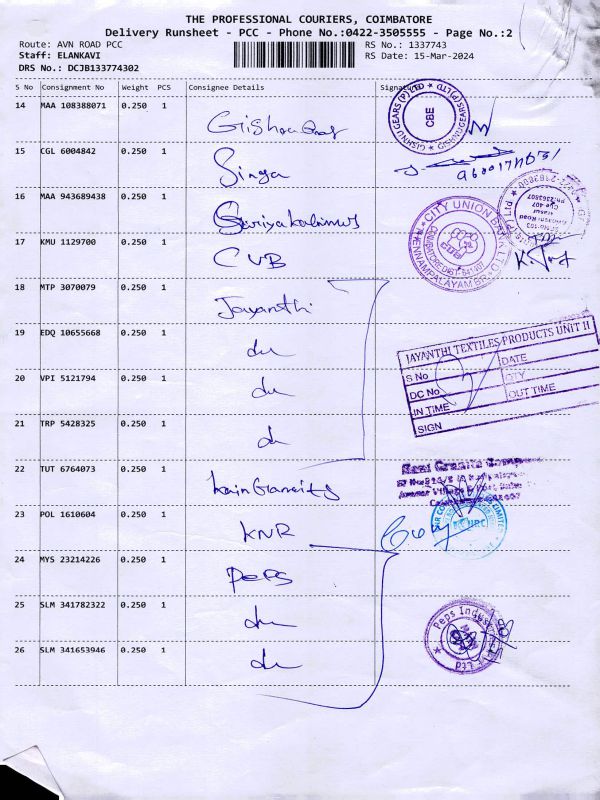 THE PROFESSIONAL COURIERS, COIMBATORE
Delivery Runsheet - PCC - Phone No.:0422-3505555 - Page No.:2
Route: AVN ROAD PCC RS No.: 1337743
Staff: ELANKAVI RS Date: 15-Mar-2024
DRS No.: DCJB133774302
S No Consignment No Weight PCS Consignee Details Signature
14 MAA 108388071 0.250 1
GISHNU GEARS (P) LTD CBE
15 CGL 6004842 0.250 1 Singa
16 MAA 943689438 0.250 1
17 KMU 1129700 0.250 1 CUB
CITY UNION BANK LTD
18 MTP 3070079 0.250 1 Jayanthi
19 EDQ 10655668 0.250 1 du
20 VPI 5121794 0.250 1 du
21 TRP 5428325 0.250 1 du
JAYANTHI TEXTILES PRODUCTS UNIT II
S No DATE
DC No QTY
IN TIME OUT TIME
SIGN
22 TUT 6764073 0.250 1
23 POL 1610604 0.250 1 KNR
24 MYS 23214226 0.250 1 Peps
25 SLM 341782322 0.250 1 du
Peps Industries Ltd
26 SLM 341653946 0.250 1 du